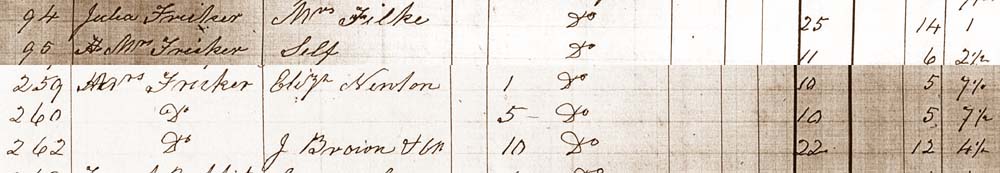 94 Julia Fricker Mrs Filke Do 25 14 1
95 Mr Fricker Self Do 11 6 2½
259 Mrs Fricker Eliza Newton 1 Do 10 5 7½
260 Do 5 Do 10 5 7½
262 Do J Brown & Co 10 Do 22 12 4½